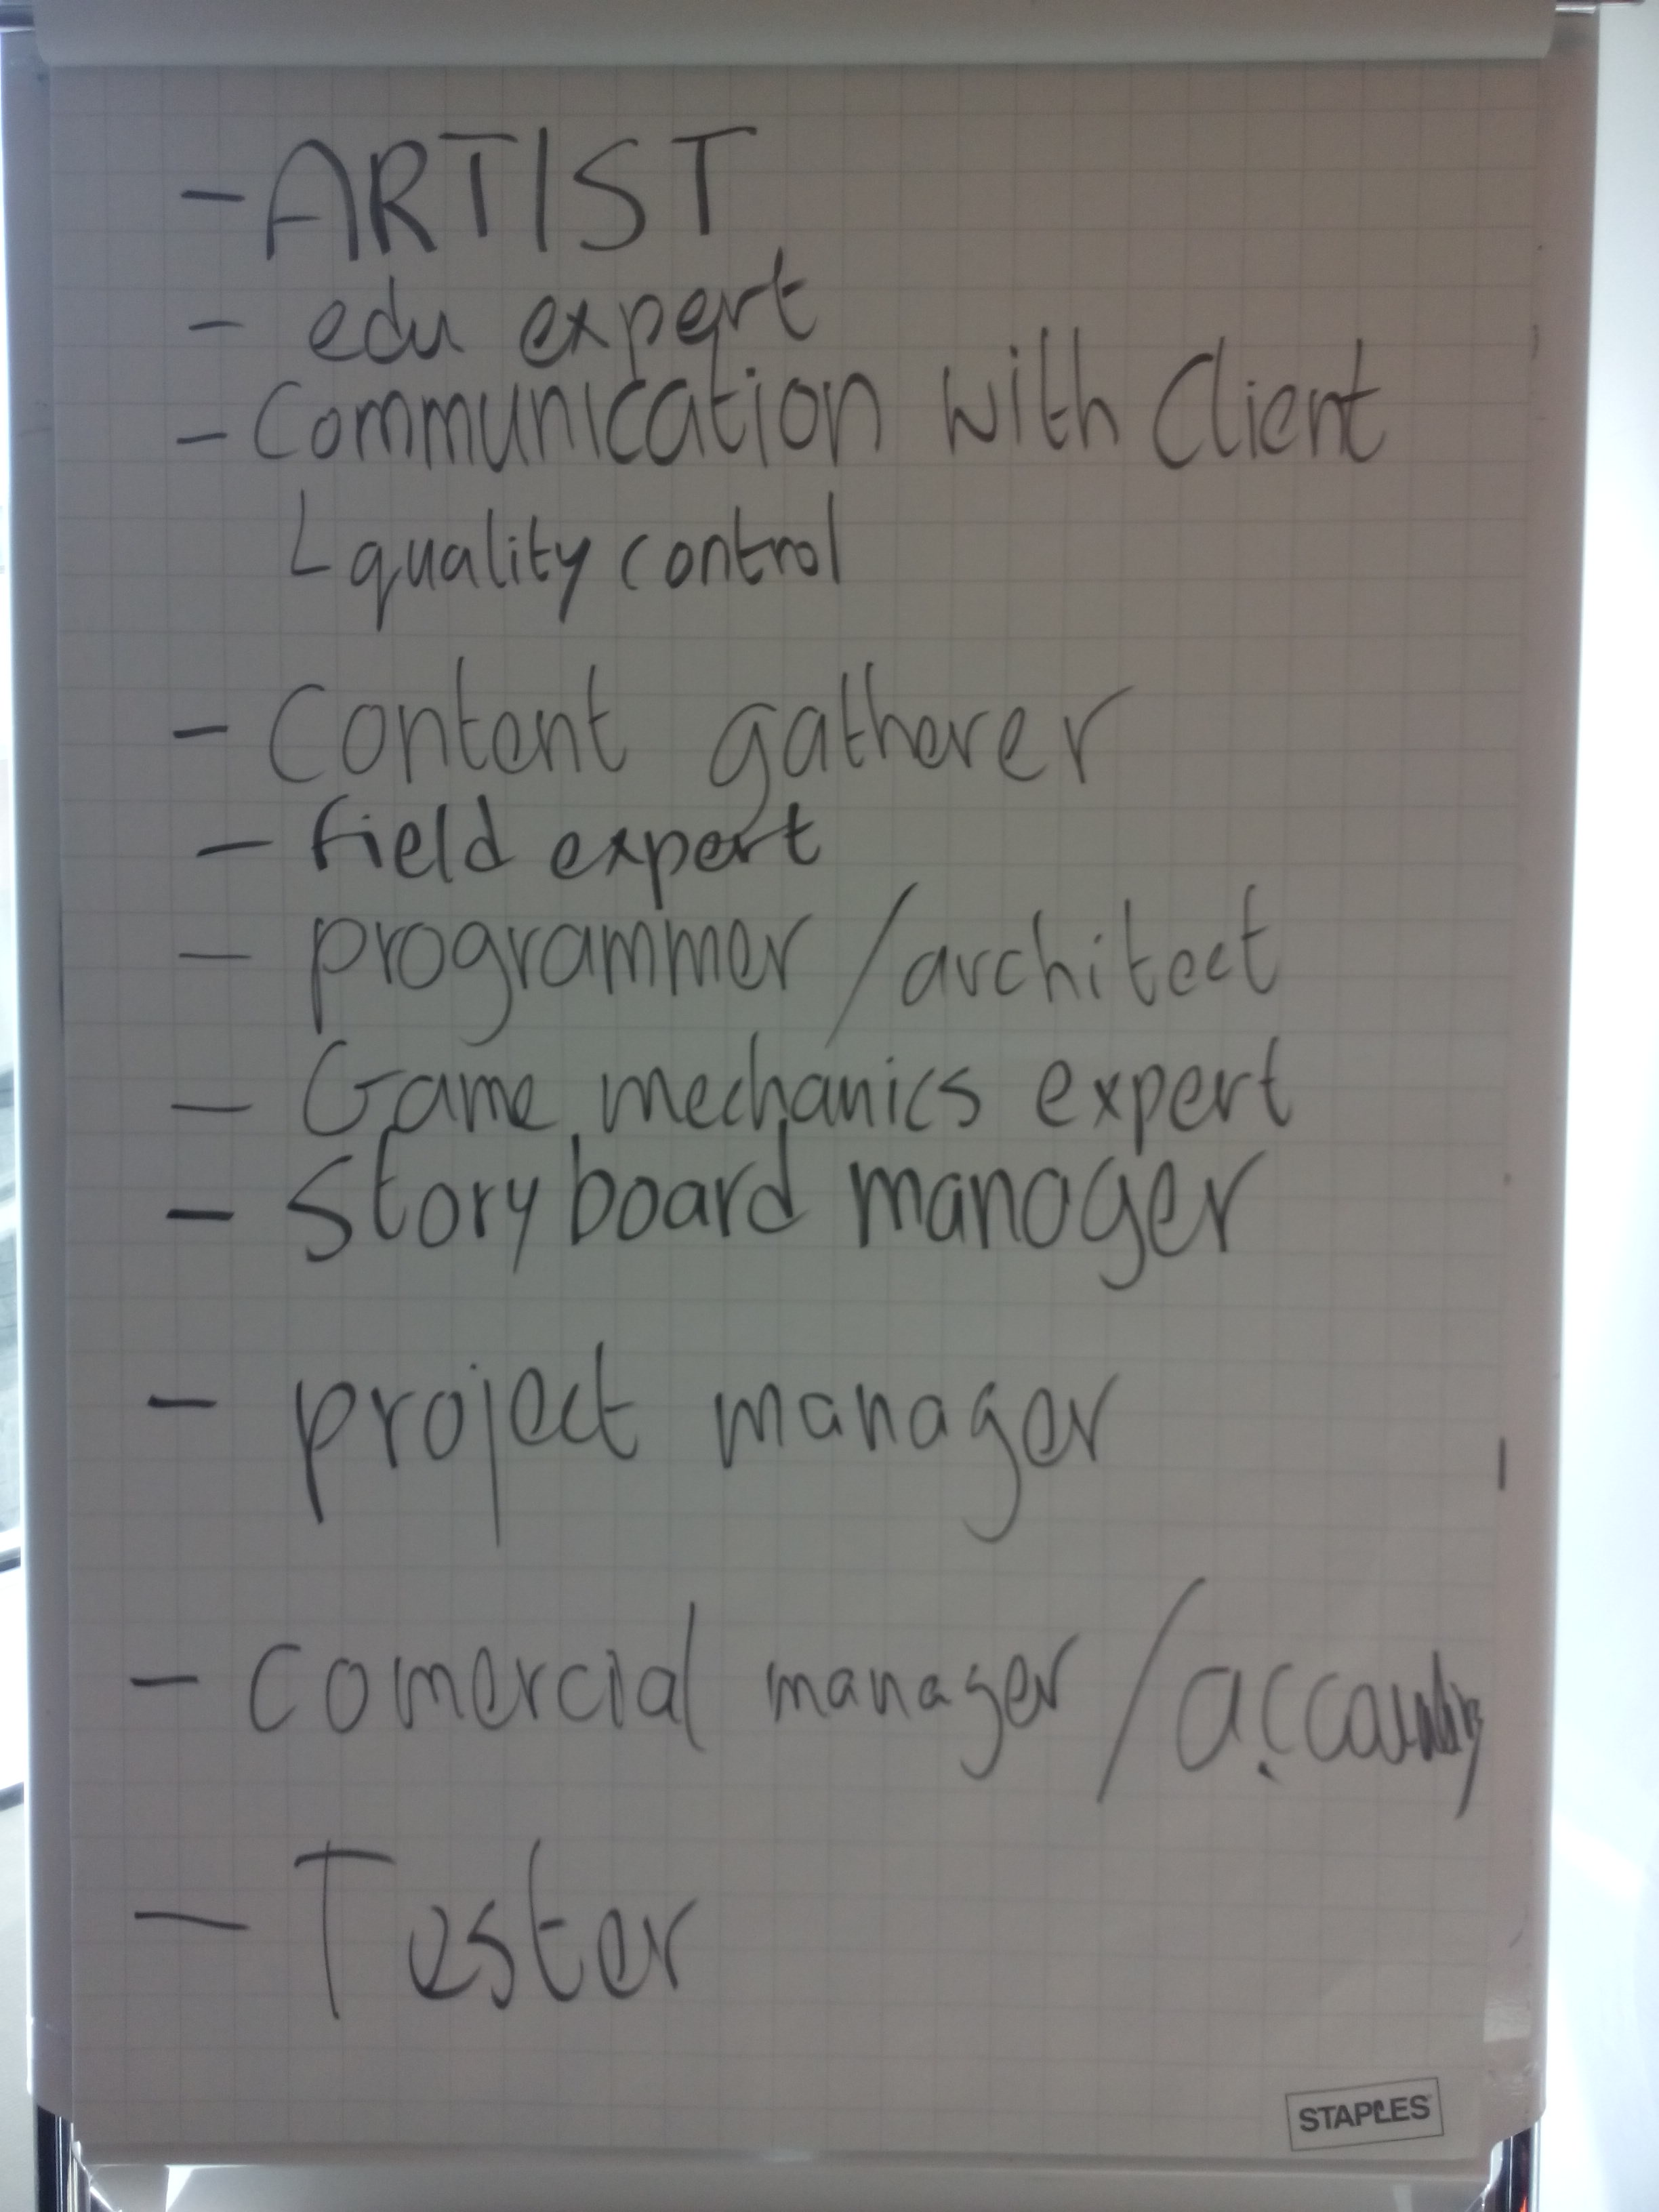 - ARTIST
- edu expert
- Communication with Client
L quality control
- Content gatherer
- field expert
- programmer / architect
- Game mechanics expert
- Story board manager
- project manager
- Comercial manager / accounting
- Tester
STAPLES